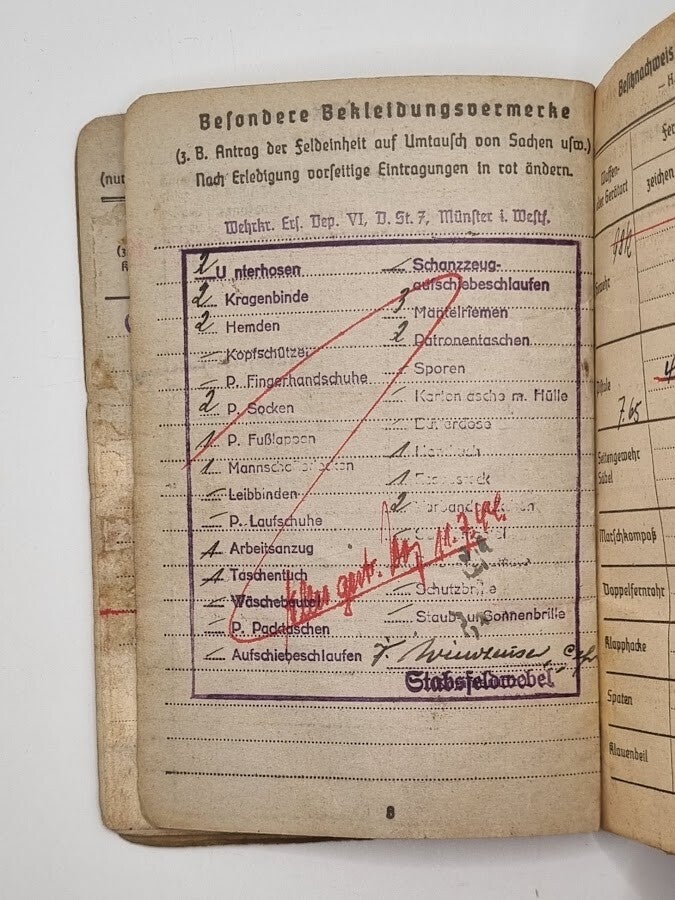 Besondere Bekleidungsvermerke
(z. B. Antrag der Feldeinheit auf Umtausch von Sachen usw.)
Nach Erledigung vorseitige Eintragungen in rot ändern.
Wehrkr. Ers. Dep. VI, D. St. 7, Münster i. Westf.
2 Unterhosen
2 Kragenbinde
2 Hemden
– Kopfschützer
– P. Fingerhandschuhe
2 P. Socken
1 P. Fußlappen
1
– Leibbinden
– P. Laufschuhe
1 Arbeitsanzug
1 Taschentuch
– Wäschebeutel
– P. Packtaschen
– Aufschiebeschlaufen
– Schanzzeug-
aufschiebeschlaufen
3 Mantelriemen
2 Patronentaschen
– Sporen
– Kartentasche m. Hülle
– Butterdose
1
1
2
– Schutzbrille
– Staub u. Sonnenbrille
11.7.
Stabsfeldwebel
8
(nur
(z
Besitznachweis
Waffen-
oder Geräteart
zeichen
Gewehr
Pistole
7.65
4
Seitengewehr
Säbel
Marschkompaß
Doppelfernrohr
Klapphacke
Spaten
Klauenbeil